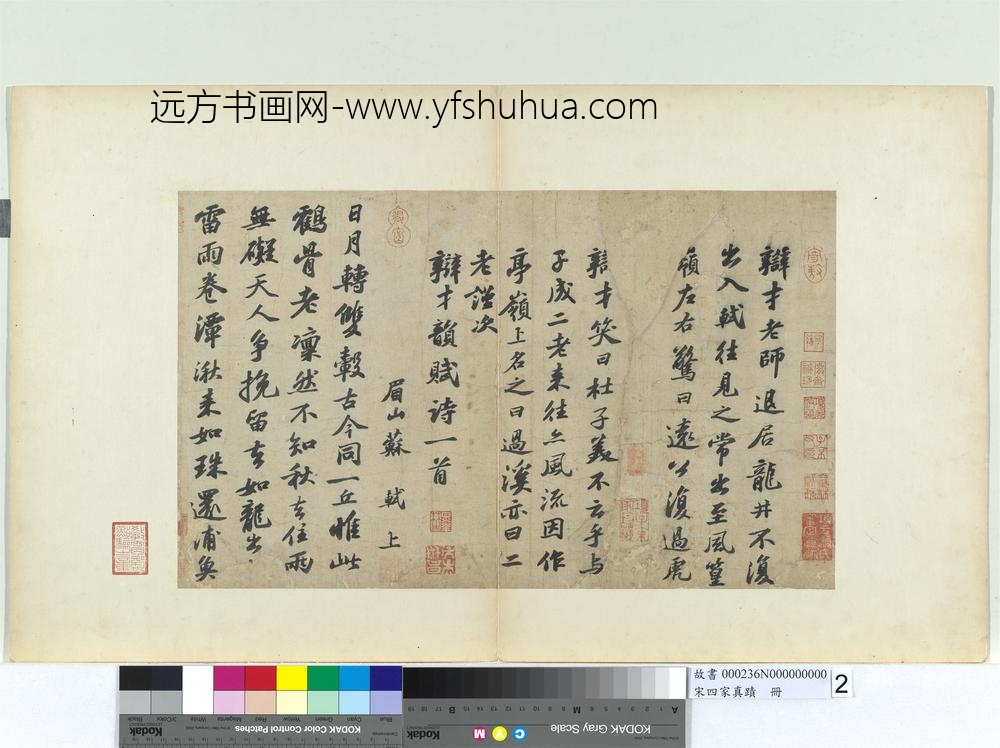 远方书画网-www.yfshuhua.com
辯才老師退居龍井不復
出入軾往見之常出至風篁
嶺左右驚曰遠公復過虎
辯才笑曰杜子美不云乎與
子成二老来往亦風流因作
亭嶺上名之曰過溪亦曰二
老謹次
辯才韻賦詩一首
眉山蘇 軾 上
日月轉雙轂古今同一丘惟此
鶴骨老凜然不知秋去住兩
無礙天人爭挽留去如龍出
雷雨卷潭湫来如珠還浦魚
故書 000236N000000000
宋四家真蹟 冊
2
KODAK Color Control Patches
Kodak
Blue Cyan Green Yellow Red Magenta White 3/Color Black
KODAK Gray Scale
Kodak
C Y M
A 1 2 3 4 5 6 M 8 9 10 11 12 13 14 15 B 17 18 19